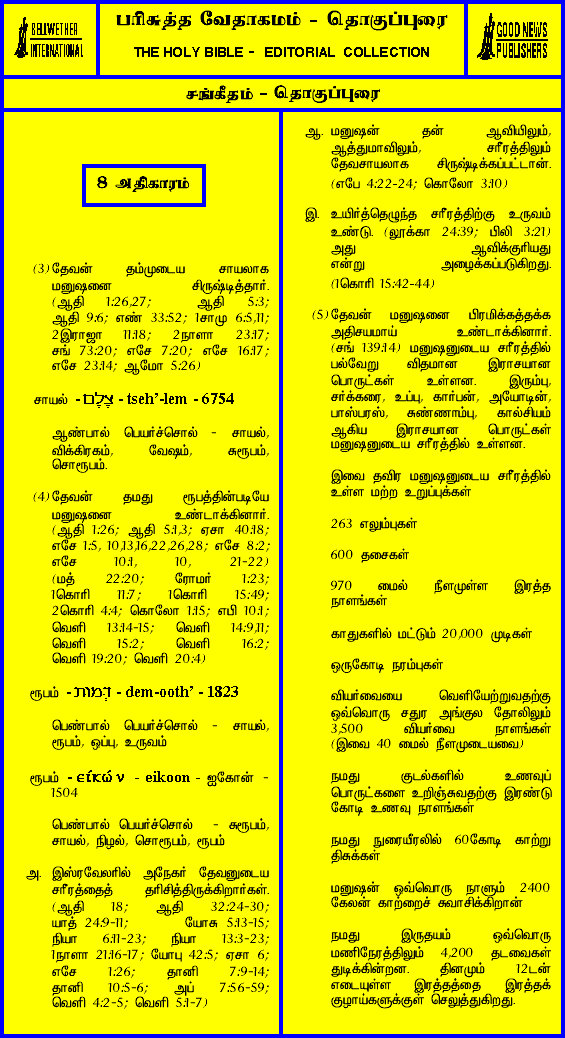 BELLWETHER
INTERNATIONAL
பரிசுத்த வேதாகமம் - தொகுப்புரை
THE HOLY BIBLE - EDITORIAL COLLECTION
GOOD NEWS
PUBLISHERS
சங்கீதம் - தொகுப்புரை
8 அதிகாரம்
(3) தேவன் தம்முடைய சாயலாக
மனுஷனை சிருஷ்டித்தார்.
(ஆதி 1:26,27; ஆதி 5:3;
ஆதி 9:6; எண் 33:52; 1சாமு 6:5,11;
2இராஜா 11:18; 2நாளா 23:17;
சங் 73:20; எசே 7:20; எசே 16:17;
எசே 23:14; ஆமோ 5:26)
சாயல் - צֶלֶם - tseh'-lem - 6754
ஆண்பால் பெயர்ச்சொல் - சாயல்,
விக்கிரகம், வேஷம், சுரூபம்,
சொரூபம்.
(4) தேவன் தமது ரூபத்தின்படியே
மனுஷனை உண்டாக்கினார்.
(ஆதி 1:26; ஆதி 5:1,3; ஏசா 40:18;
எசே 1:5, 10,13,16,22,26,28; எசே 8:2;
எசே 10:1, 10, 21-22)
(மத் 22:20; ரோமர் 1:23;
1கொரி 11:7; 1கொரி 15:49;
2கொரி 4:4; கொலோ 1:15; எபி 10:1;
வெளி 13:14-15; வெளி 14:9,11;
வெளி 15:2; வெளி 16:2;
வெளி 19:20; வெளி 20:4)
ரூபம் - דְּמוּת - dem-ooth' - 1823
பெண்பால் பெயர்ச்சொல் - சாயல்,
ரூபம், ஒப்பு, உருவம்
ரூபம் - εἰκών - eikoon - ஐகோன் -
1504
பெண்பால் பெயர்ச்சொல் - சுரூபம்,
சாயல், நிழல், சொரூபம், ரூபம்
அ. இஸ்ரவேலரில் அநேகர் தேவனுடைய
சரீரத்தைத் தரிசித்திருக்கிறார்கள்.
(ஆதி 18; ஆதி 32:24-30;
யாத் 24:9-11; யோசு 5:13-15;
நியா 6:11-23; நியா 13:3-23;
1நாளா 21:16-17; யோபு 42:5; ஏசா 6;
எசே 1:26; தானி 7:9-14;
தானி 10:5-6; அப் 7:56-59;
வெளி 4:2-5; வெளி 5:1-7)
ஆ. மனுஷன் தன் ஆவியிலும்,
ஆத்துமாவிலும், சரீரத்திலும்
தேவசாயலாக சிருஷ்டிக்கப்பட்டான்.
(எபே 4:22-24; கொலோ 3:10)
இ. உயிர்த்தெழுந்த சரீரத்திற்கு உருவம்
உண்டு. (லூக்கா 24:39; பிலி 3:21)
அது ஆவிக்குரியது
என்று அழைக்கப்படுகிறது.
(1கொரி 15:42-44)
(5) தேவன் மனுஷனை பிரமிக்கத்தக்க
அதிசயமாய் உண்டாக்கினார்.
(சங் 139:14) மனுஷனுடைய சரீரத்தில்
பல்வேறு விதமான இராசயான
பொருட்கள் உள்ளன. இரும்பு,
சர்க்கரை, உப்பு, கார்பன், அயோடின்,
பாஸ்பரஸ், சுண்ணாம்பு, கால்சியம்
ஆகிய இராசயான பொருட்கள்
மனுஷனுடைய சரீரத்தில் உள்ளன.
இவை தவிர மனுஷனுடைய சரீரத்தில்
உள்ள மற்ற உறுப்புக்கள்
263 எலும்புகள்
600 தசைகள்
970 மைல் நீளமுள்ள இரத்த
நாளங்கள்
காதுகளில் மட்டும் 20,000 முடிகள்
ஒருகோடி நரம்புகள்
வியர்வையை வெளியேற்றுவதற்கு
ஒவ்வொரு சதுர அங்குல தோலிலும்
3,500 வியர்வை நாளங்கள்
(இவை 40 மைல் நீளமுடையவை)
நமது குடல்களில் உணவுப்
பொருட்களை உறிஞ்சுவதற்கு இரண்டு
கோடி உணவு நாளங்கள்
நமது நுரையீரலில் 60கோடி காற்று
திசுக்கள்
மனுஷன் ஒவ்வொரு நாளும் 2400
கேலன் காற்றைச் சுவாசிக்கிறான்
நமது இருதயம் ஒவ்வொரு
மணிநேரத்திலும் 4,200 தடவைகள்
துடிக்கின்றன. தினமும் 12டன்
எடையுள்ள இரத்தத்தை இரத்தக்
குழாய்களுக்குள் செலுத்துகிறது.